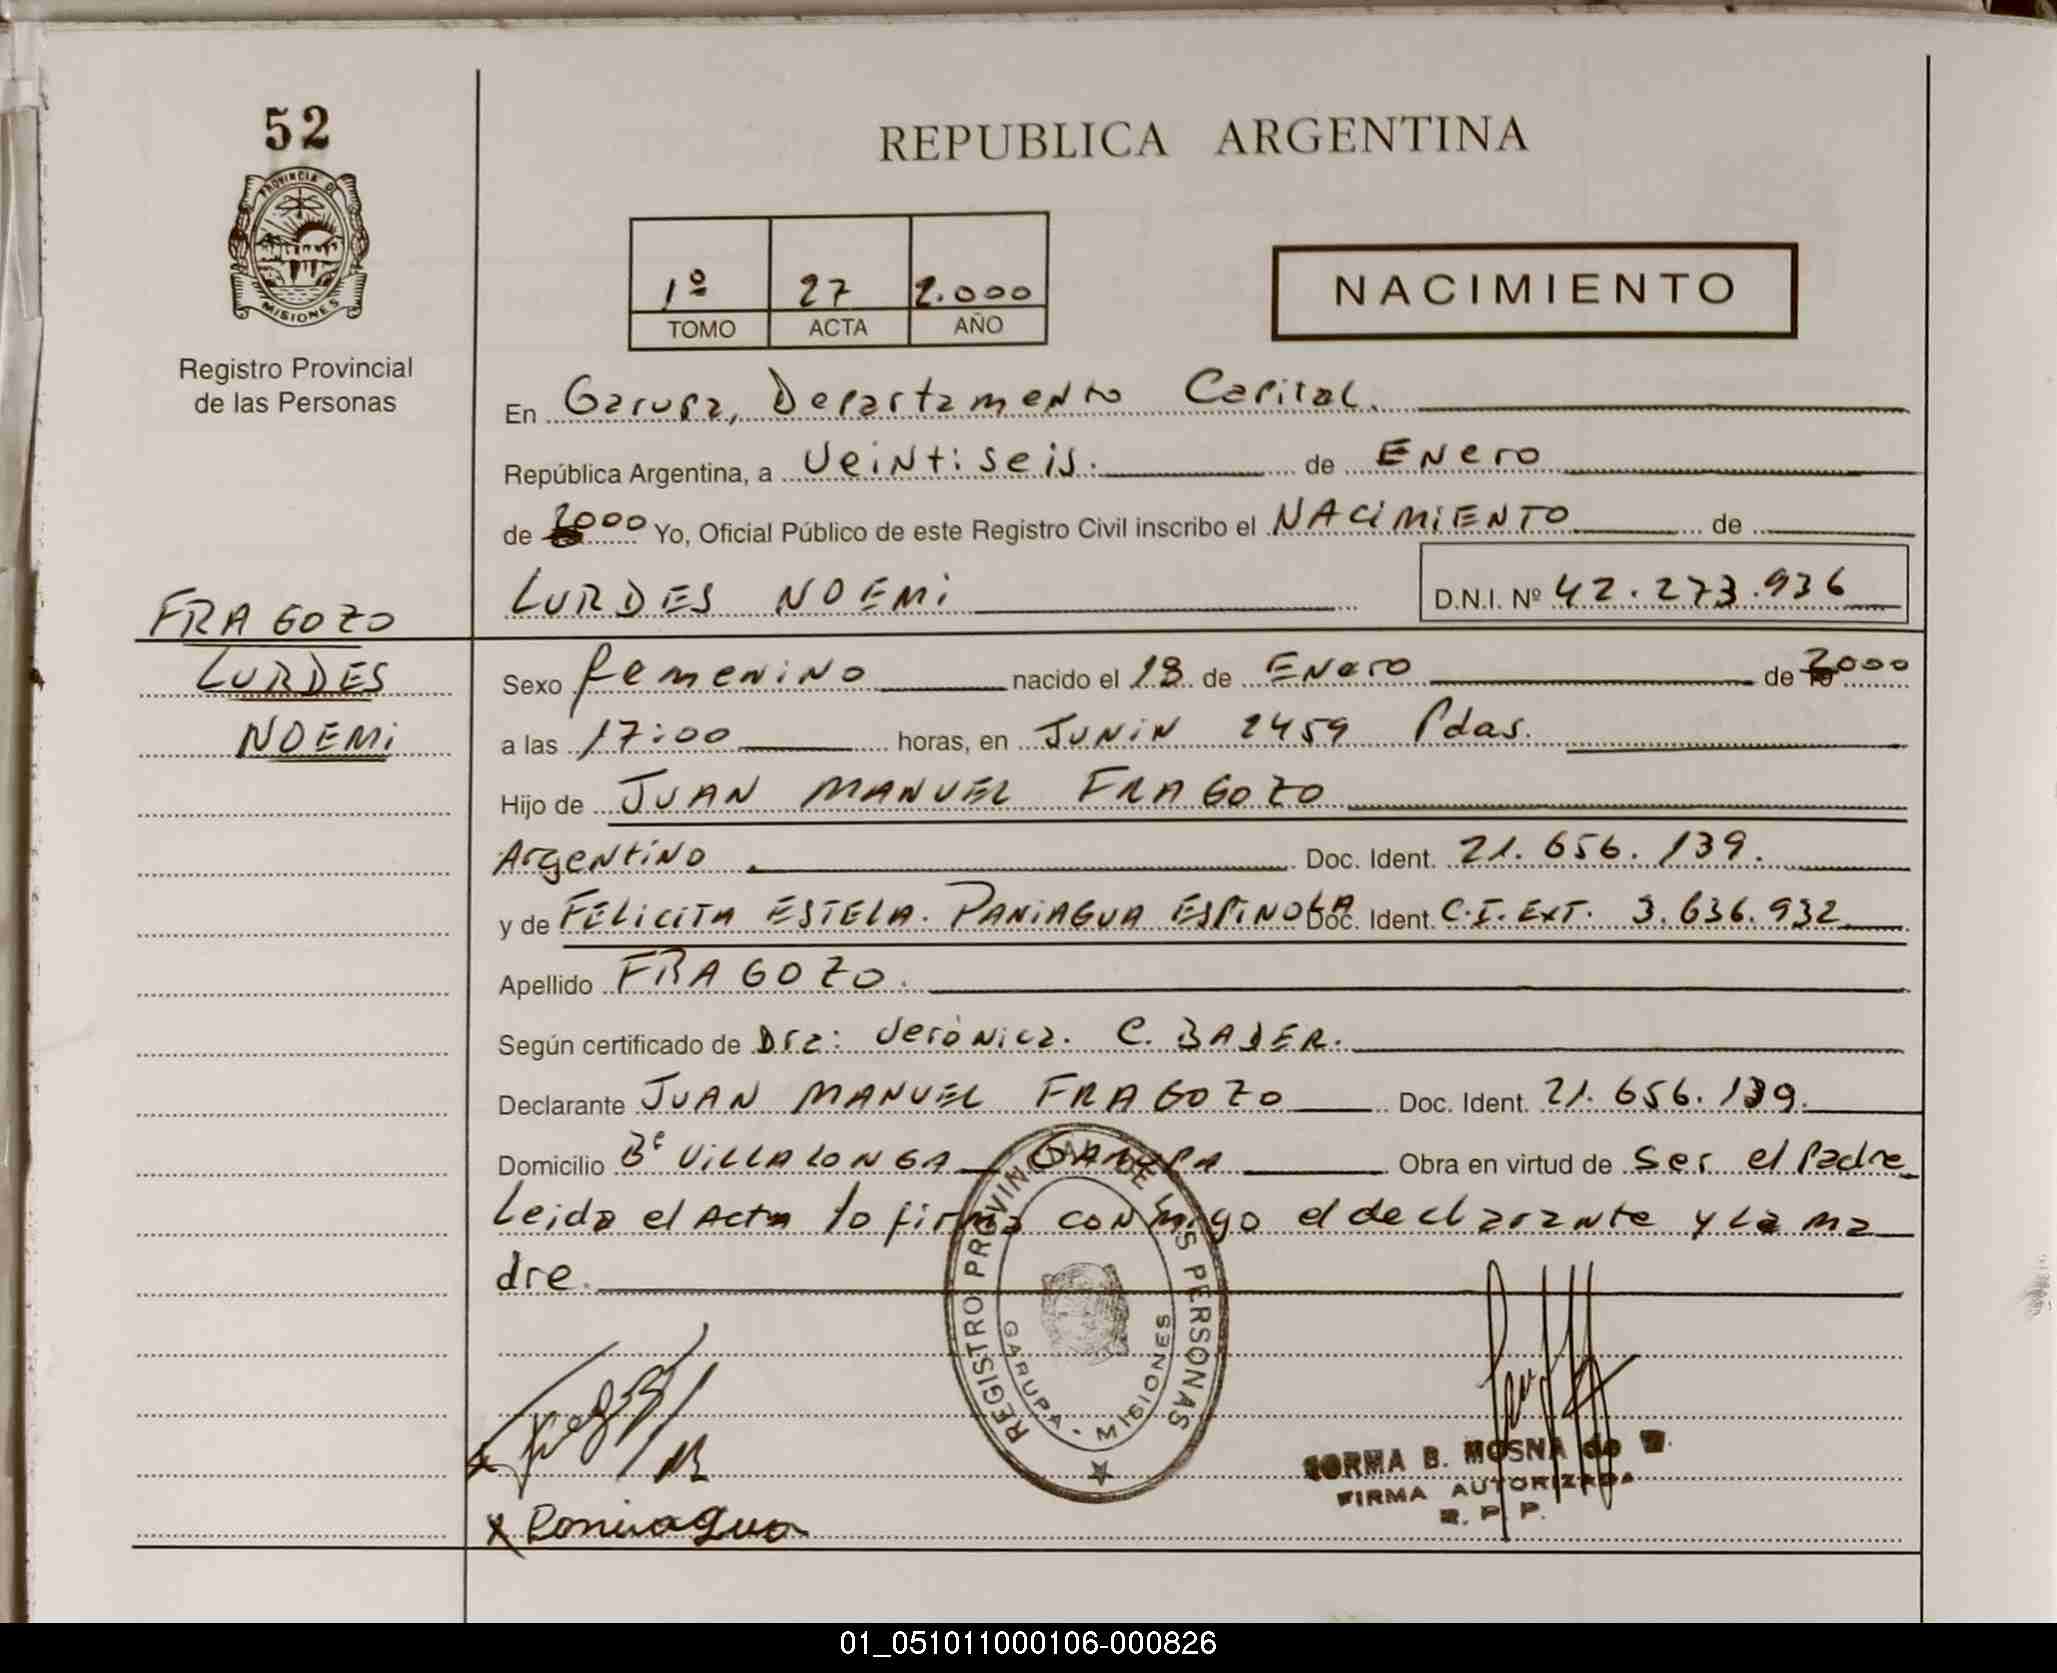 52
PROVINCIA DE
MISIONES
Registro Provincial
de las Personas
REPUBLICA ARGENTINA
1º 27 2.000
TOMO ACTA AÑO
NACIMIENTO
En Garupa, Departamento Capital.
República Argentina, a Veintiseis. de Enero
de 2000 Yo, Oficial Público de este Registro Civil inscribo el NACIMIENTO de
LURDES NOEMI D.N.I. Nº 42.273.936
FRAGOZO
LURDES
NOEMI
Sexo femenino nacido el 18 de Enero de 2000
a las 17:00 horas, en JUNIN 2459 Pdas.
Hijo de JUAN MANUEL FRAGOZO
Argentino Doc. Ident. 21.656.139.
y de FELICITA ESTELA. PANIAGUA ESPINOLA Doc. Ident. C.I. EXT. 3.636.932
Apellido FRAGOZO.
Según certificado de Dra: Verónica. C. BADER.
Declarante JUAN MANUEL FRAGOZO Doc. Ident. 21.656.139.
Domicilio Bº VILLALONGA GARUPA Obra en virtud de Ser el Padre
Leida el Acta lo firma conmigo el declarante y la ma
dre.
REGISTRO PROVINCIAL DE LAS PERSONAS
GARUPA - MISIONES
x Paniagua
NORMA B. MOSNA de
FIRMA AUTORIZADA
R. P. P.
01_051011000106-000826